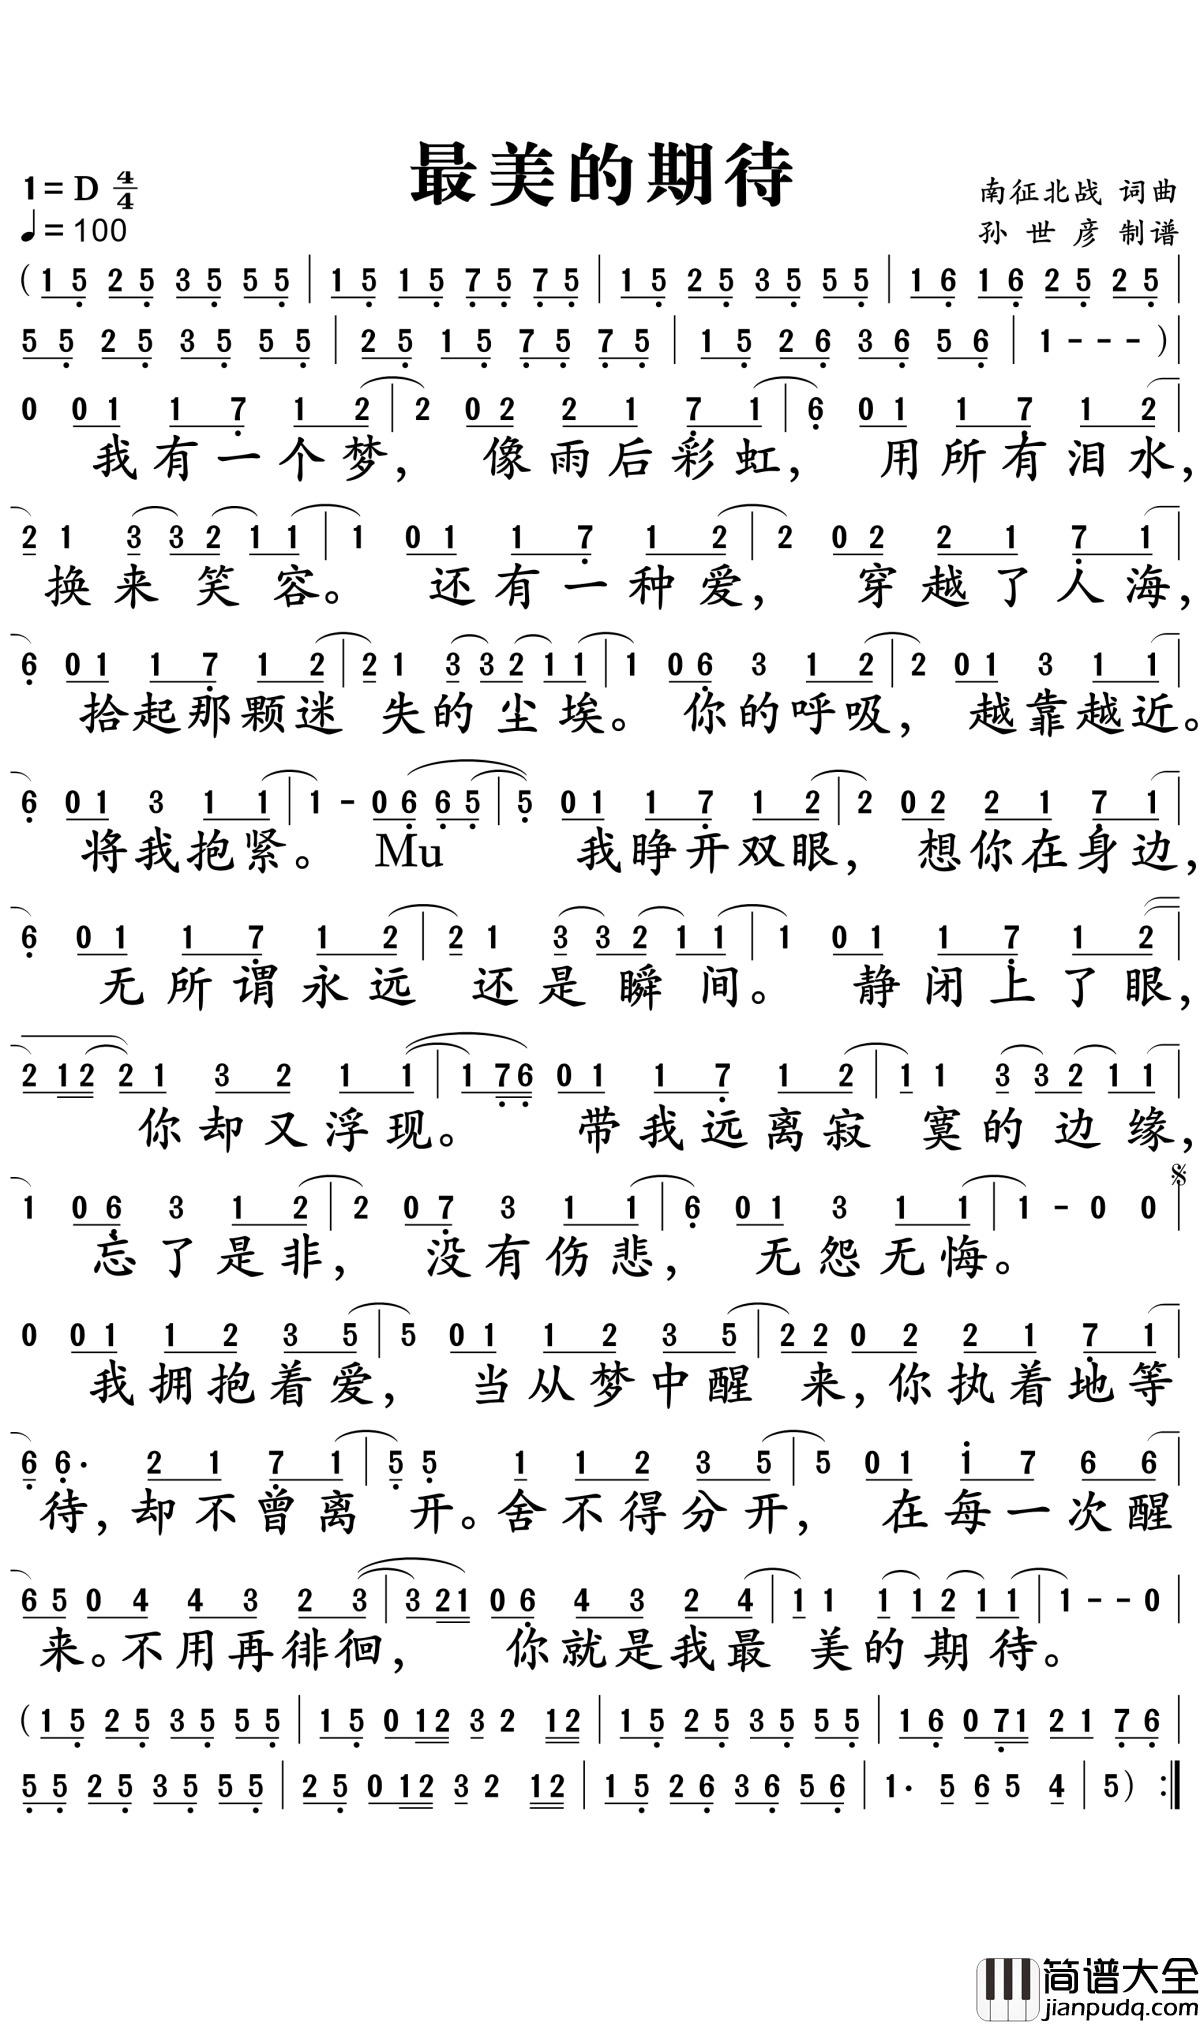 最美的期待
1=D 4/4
♩=100
南征北战 词曲
孙世彦 制谱
(1 5 2 5 3 5 5 5 | 1 5 1 5 7 5 7 5 | 1 5 2 5 3 5 5 5 | 1 6 1 6 2 5 2 5 |
5 5 2 5 3 5 5 5 | 2 5 1 5 7 5 7 5 | 1 5 2 6 3 6 5 6 | 1 - - - ) |
0 0 1 1 7 1 2 | 2 0 2 2 1 7 1 | 6 0 1 1 7 1 2 |
我有一个梦, 像雨后彩虹, 用所有泪水,
2 1 3 3 2 1 1 | 1 0 1 1 7 1 2 | 2 0 2 2 1 7 1 |
换来笑容。 还有一种爱, 穿越了人海,
6 0 1 1 7 1 2 | 2 1 3 3 2 1 1 | 1 0 6 3 1 2 | 2 0 1 3 1 1 |
拾起那颗迷失的尘埃。 你的呼吸, 越靠越近。
6 0 1 3 1 1 | 1 - 0 6 6 5 | 5 0 1 1 7 1 2 | 2 0 2 2 1 7 1 |
将我抱紧。 Mu 我睁开双眼, 想你在身边,
6 0 1 1 7 1 2 | 2 1 3 3 2 1 1 | 1 0 1 1 7 1 2 |
无所谓永远 还是瞬间。 静闭上了眼,
2 1 2 2 1 3 2 1 1 | 1 7 6 0 1 1 7 1 2 | 1 1 3 3 2 1 1 |
你却又浮现。 带我远离寂寞的边缘,
1 0 6 3 1 2 | 2 0 7 3 1 1 | 6 0 1 3 1 1 | 1 - 0 0 |
忘了是非, 没有伤悲, 无怨无悔。
0 0 1 1 2 3 5 | 5 0 1 1 2 3 5 | 2 2 0 2 2 1 7 1 |
我拥抱着爱, 当从梦中醒来, 你执着地等
6 6· 2 1 7 1 | 5 5 1 1 2 3 5 | 5 0 1 1 7 6 6 |
待, 却不曾离开。舍不得分开, 在每一次醒
6 5 0 4 4 3 2 3 | 3 2 1 0 6 4 3 2 4 | 1 1 1 1 2 1 1 | 1 - - 0
来。不用再徘徊, 你就是我最美的期待。
(1 5 2 5 3 5 5 5 | 1 5 0 1 2 3 2 1 2 | 1 5 2 5 3 5 5 5 | 1 6 0 7 1 2 1 7 6 |
5 5 2 5 3 5 5 5 | 2 5 0 1 2 3 2 1 2 | 1 5 2 6 3 6 5 6 | 1· 5 6 5 4 | 5 ) :|
简谱大全
jianpudq.com